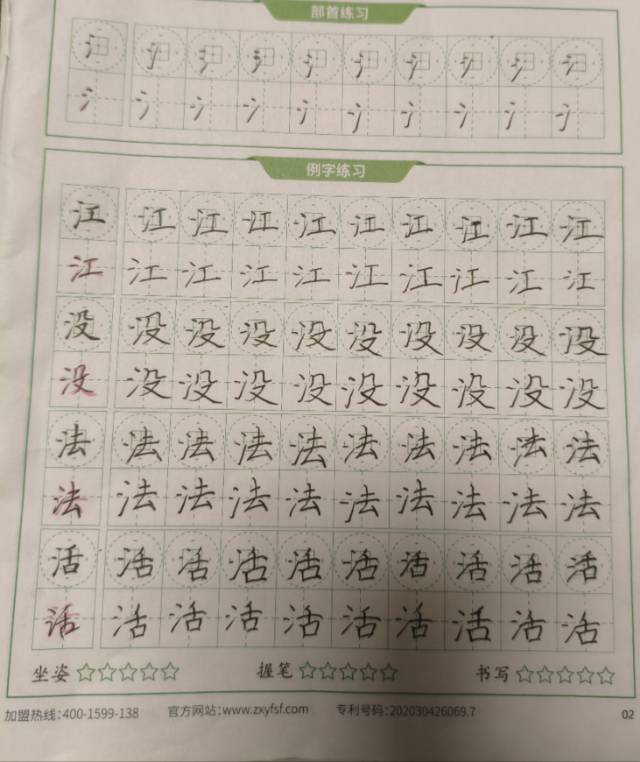 部首练习
氵 氵 氵 氵 氵 氵 氵 氵 氵 氵
氵 氵 氵 氵 氵 氵 氵 氵 氵 氵
例字练习
江 江 江 江 江 江 江 江 江 江
江 江 江 江 江 江 江 江 江 江
没 没 没 没 没 没 没 没 没 没
没 没 没 没 没 没 没 没 没 没
法 法 法 法 法 法 法 法 法 法
法 法 法 法 法 法 法 法 法 法
活 活 活 活 活 活 活 活 活 活
活 活 活 活 活 活 活 活 活 活
坐姿☆☆☆☆☆ 握笔☆☆☆☆☆ 书写☆☆☆☆☆
加盟热线:400-1599-138 官方网站:www.zxyfsf.com 专利号码:202030426069.7 02